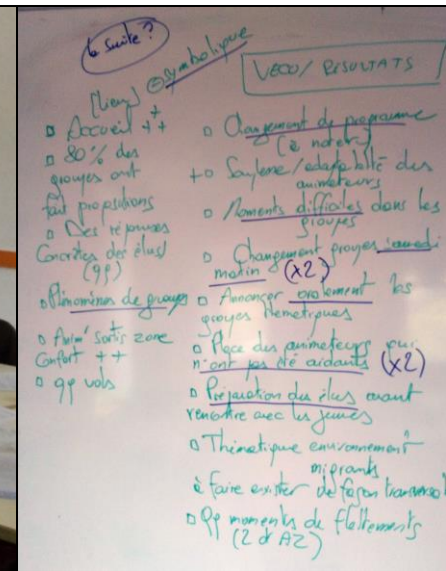 la suite ?
[lieux] ⊖ symbolique
VECU / RESULTATS
□ Accueil +++
□ 80% des
groupes ont
fait propositions
□ Des réponses
Concrètes des élus
(qq)
□ Phénomènes de groupes
□ Anim' sortis zone
Confort ++
□ qq vols
□ Changement de programme
(à noter)
+ □ Souplesse/adaptabilité des
animateurs
□ Moments difficiles dans les
groupes
□ Changement groupes samedi
matin (x2)
□ Annoncer oralement les
groupes thématiques
□ Place des animateurs qui
n'ont pas été aidants (x2)
□ Préparation des élus avant
rencontre avec les jeunes
□ Thématique environnement
migrants
à faire exister de façon transversal
□ Qq moments de flottements
(2 de A2)